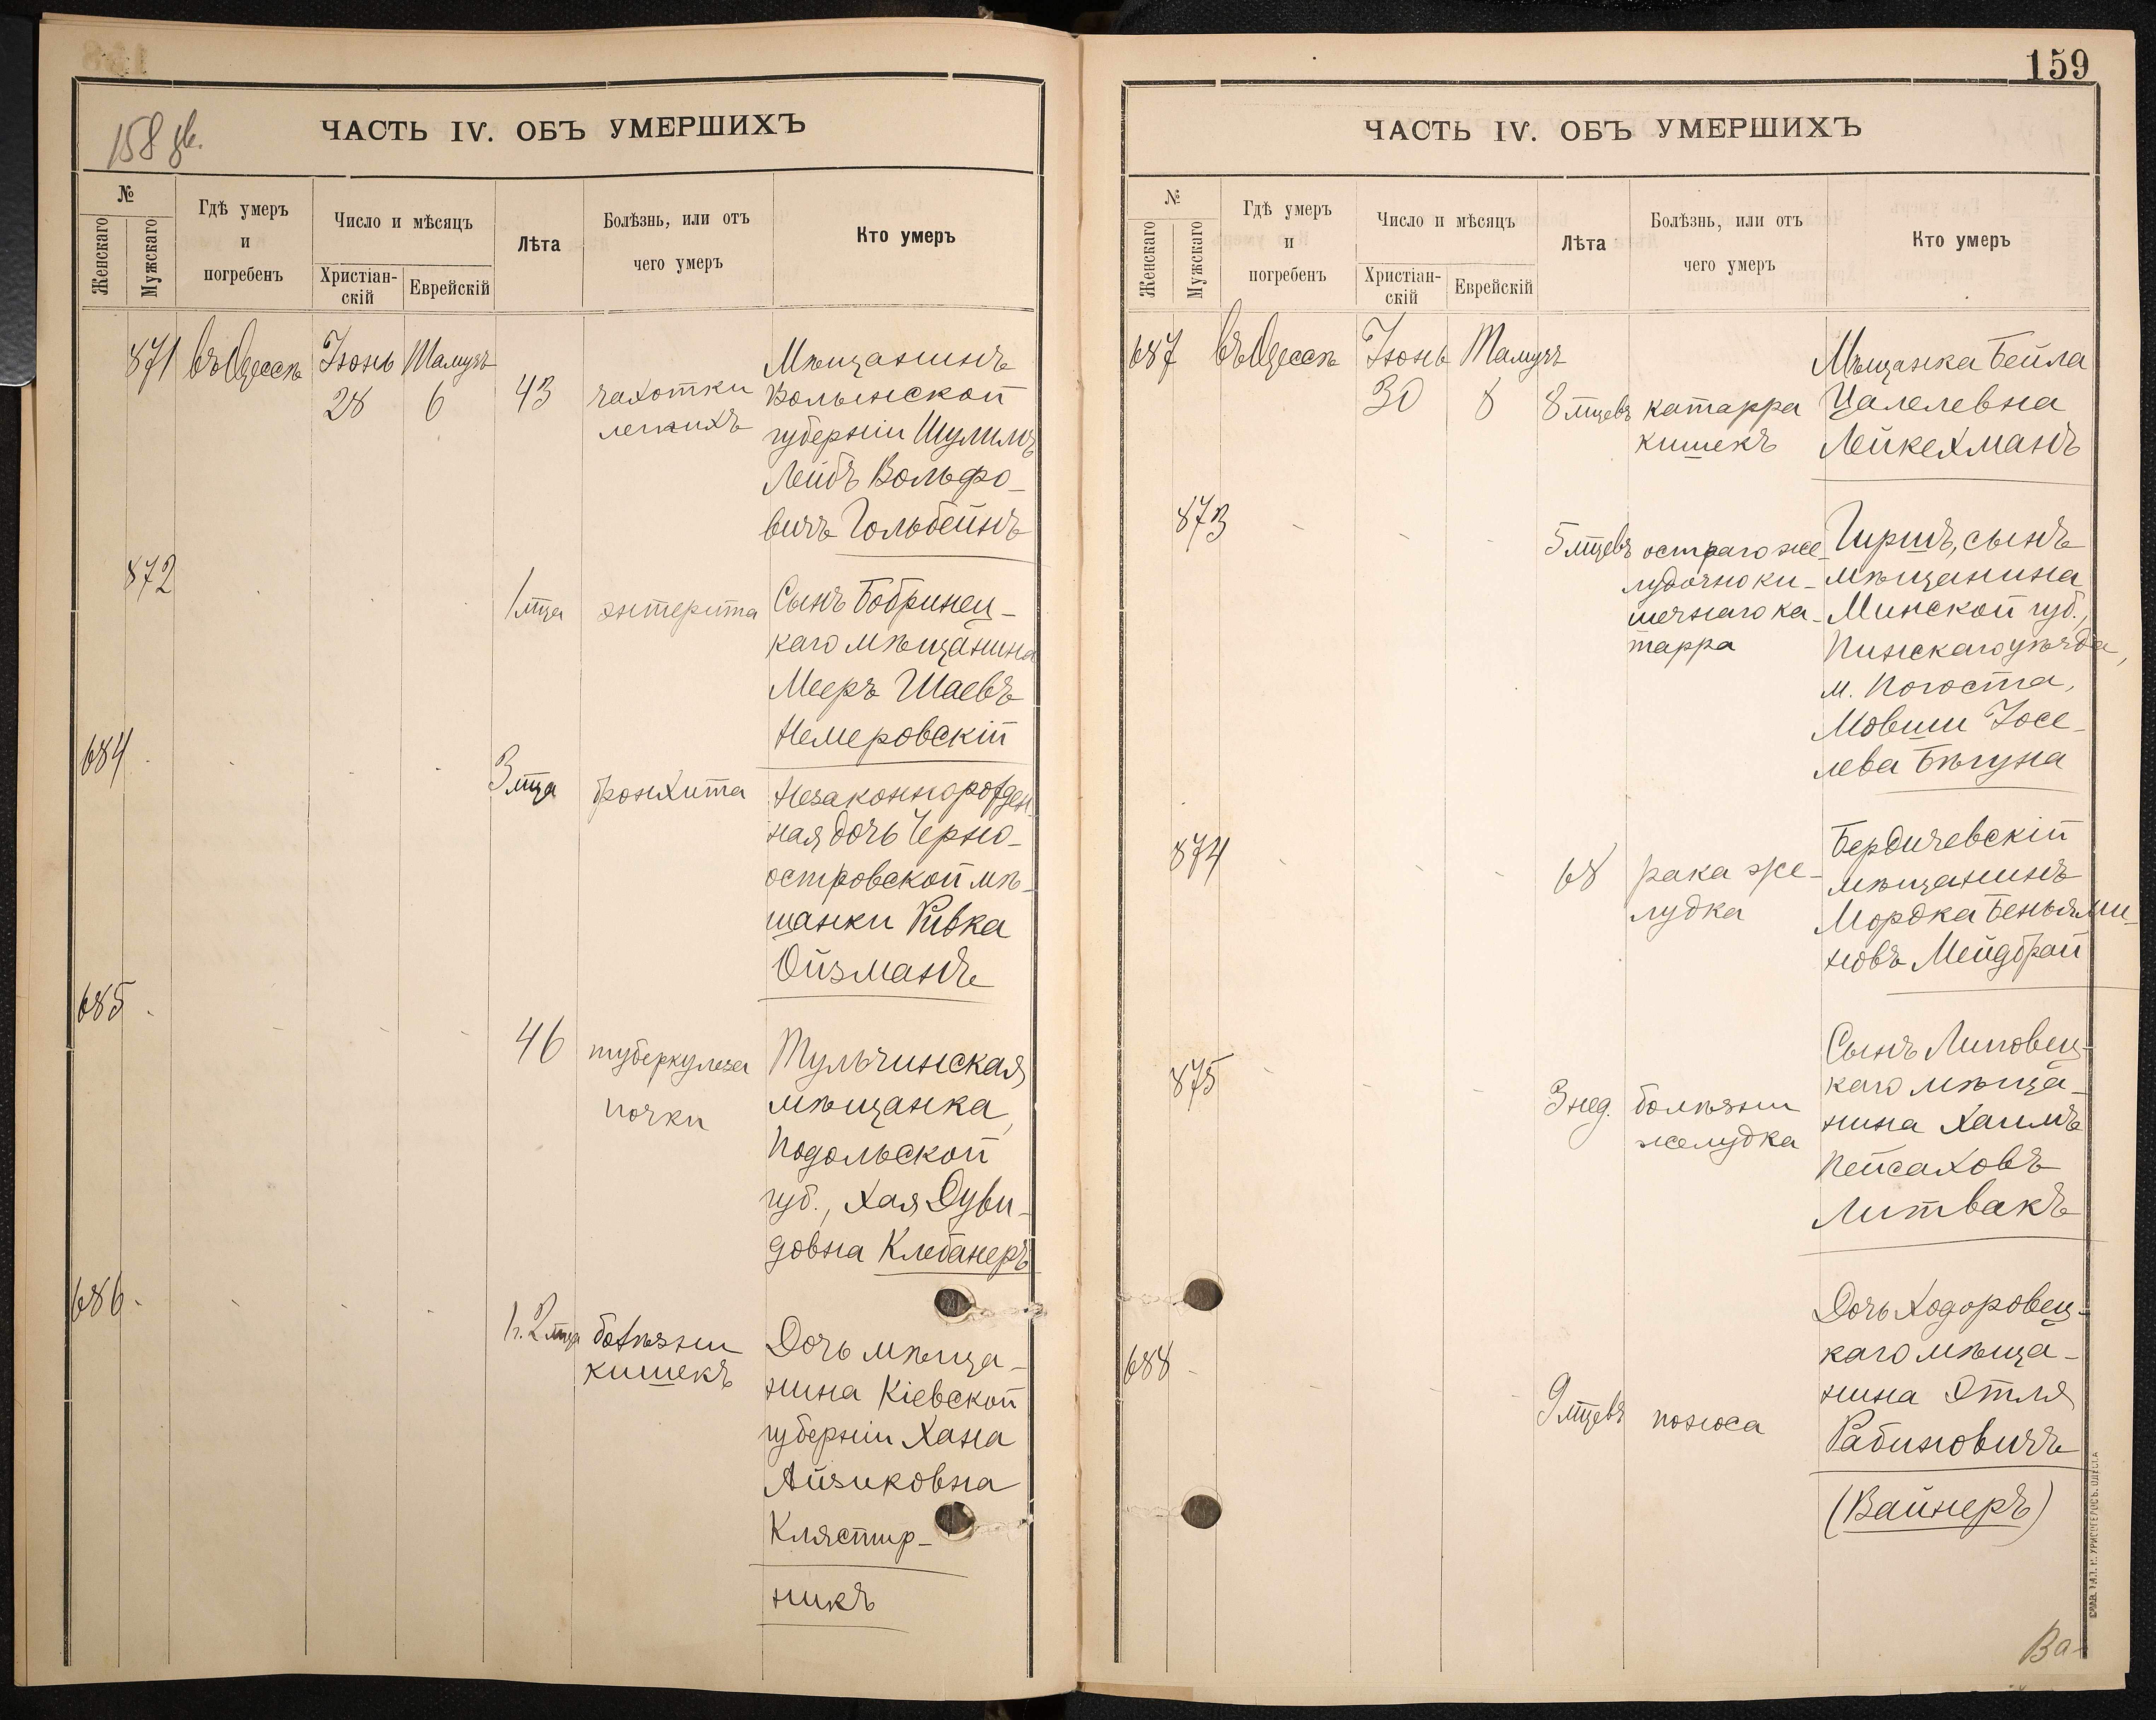 158 дв.
ЧАСТЬ IV. ОБЪ УМЕРШИХЪ
№
Женскаго
Мужскаго
Гдѣ умеръ
и
погребенъ
Число и мѣсяцъ
Христіан-
скій
Еврейскій
Лѣта
Болѣзнь, или отъ
чего умеръ
Кто умеръ
871 въ Одессѣ Іюнь Тамузъ
28 6 43 чахотки
легкихъ
Мѣщанинъ
Волынской
губерніи Шулимъ
Лейбъ Вольфо-
вичъ Гольбейнъ
872
1 мца энтерита
Сынъ Бобринец-
каго мѣщанина
Мееръ Шаевъ
Немеровскій
684
3 мца бронхита
Незаконнорожден-
ная дочь Черно-
островской мѣ-
щанки Ривка
Ойзманъ
685
46 туберкулеза
почки
Тульчинская
мѣщанка,
Подольской
губ., Хая Дуви-
довна Клебанеръ
686
1 г. 2 мца болѣзни
кишекъ
Дочь мѣща-
нина Кіевской
губерніи Хана
Айзиковна
Клястир-
никъ
159
ЧАСТЬ IV. ОБЪ УМЕРШИХЪ
№
Женскаго
Мужскаго
Гдѣ умеръ
и
погребенъ
Число и мѣсяцъ
Христіан-
скій
Еврейскій
Лѣта
Болѣзнь, или отъ
чего умеръ
Кто умеръ
687 въ Одессѣ Іюнь Тамузъ
30 8 8 мцевъ катарра
кишекъ
Мѣщанка Бейла
Цалелевна
Лейкехманъ
873
5 мцевъ остраго же-
лудочноки-
шечнаго ка-
тарра
Гиршъ, сынъ
мѣщанина
Минской губ.,
Пинскаго уѣзда,
м. Погоста,
Мовши Іосе-
лева Бѣгуна
874
68 рака же-
лудка
Бердичевскій
мѣщанинъ
Мордка Беньями-
новъ Мейдбрай
875
3 нед. болѣзни
желудка
Сынъ Липовец-
каго мѣща-
нина Хаимъ
Пейсаховъ
Литвакъ
688
9 мцевъ поноса
Дочь Ходоровец-
каго мѣща-
нина Этля
Рабиновичъ
(Вайнеръ)
Ва-